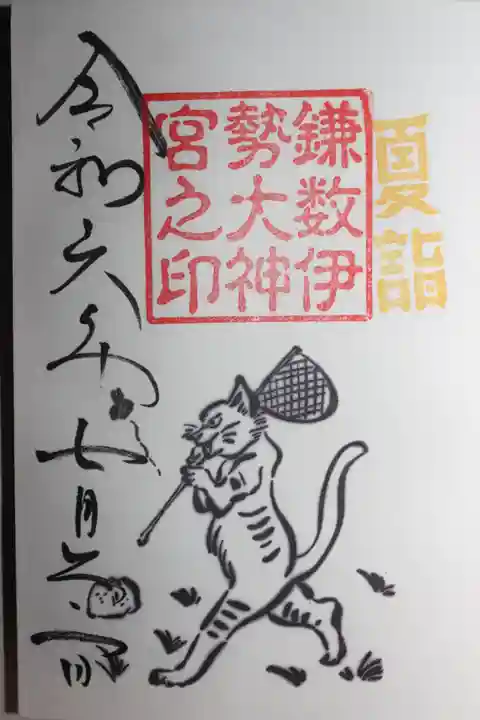 夏詣
鎌数伊
勢大神
宮之印
令和六年七月六日